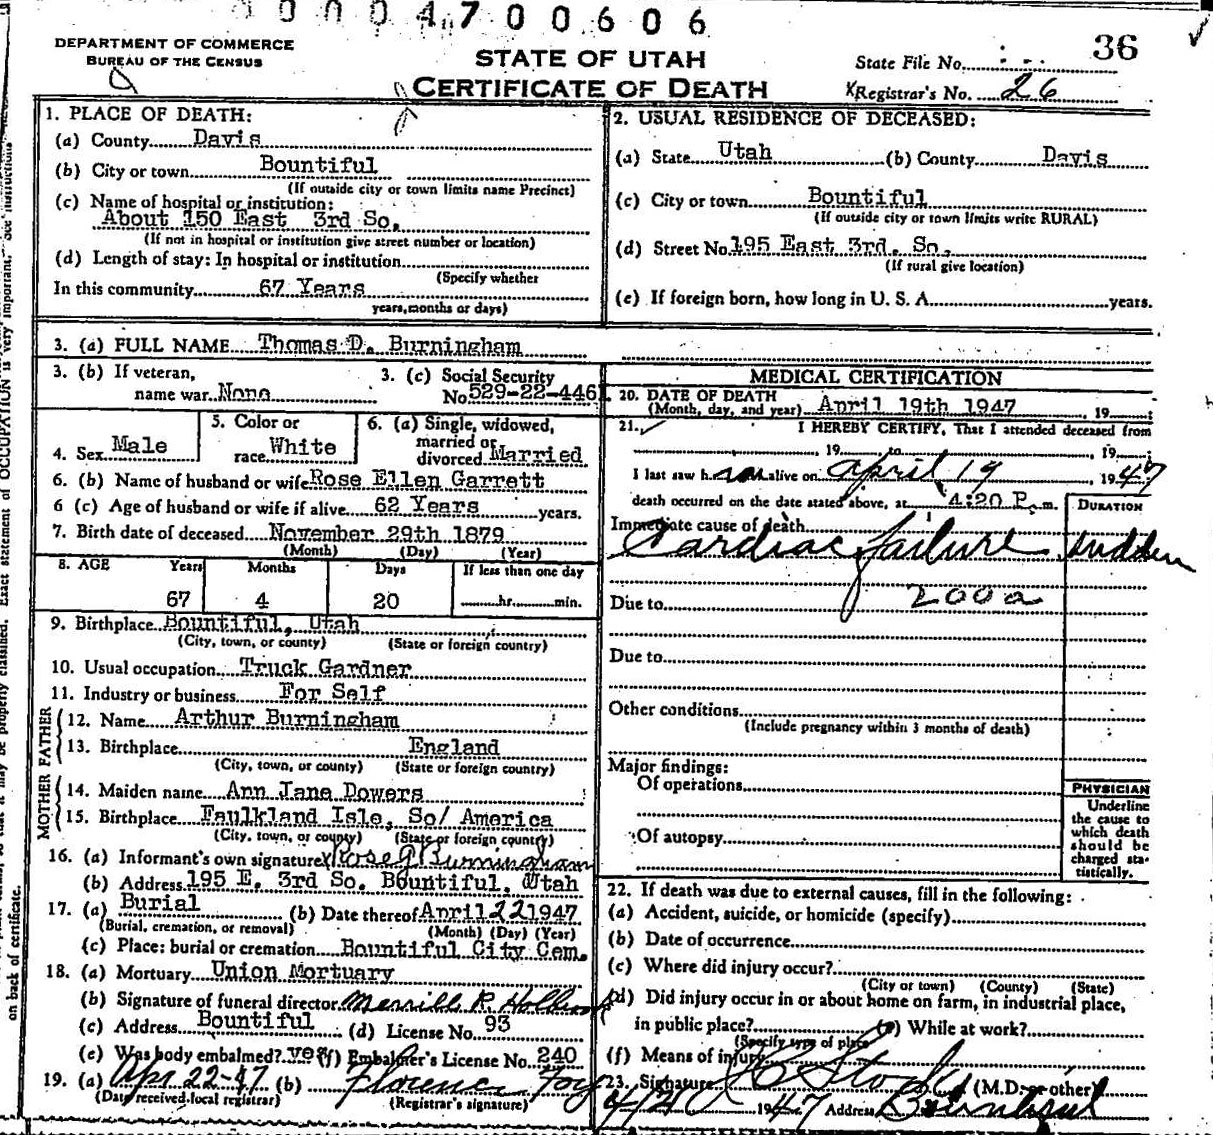 0 0 0 0 4 7 0 0 6 0 6
36
DEPARTMENT OF COMMERCE
BUREAU OF THE CENSUS
STATE OF UTAH
CERTIFICATE OF DEATH
State File No.
Registrar's No. 26
1. PLACE OF DEATH:
(a) County Davis
(b) City or town Bountiful
(If outside city or town limits name Precinct)
(c) Name of hospital or institution:
About 150 East 3rd So.
(If not in hospital or institution give street number or location)
(d) Length of stay: In hospital or institution
(Specify whether
In this community 67 Years
years, months or days)
2. USUAL RESIDENCE OF DECEASED:
(a) State Utah (b) County Davis
(c) City or town Bountiful
(If outside city or town limits write RURAL)
(d) Street No. 195 East 3rd. So.
(If rural give location)
(e) If foreign born, how long in U. S. A. years.
3. (a) FULL NAME Thomas D. Burningham
3. (b) If veteran,
name war None
3. (c) Social Security
No. 529-22-4461
4. Sex Male
5. Color or
race White
6. (a) Single, widowed,
married or
divorced Married
6. (b) Name of husband or wife Rose Ellen Garrett
6 (c) Age of husband or wife if alive 62 Years years.
7. Birth date of deceased November 29th 1879
(Month) (Day) (Year)
8. AGE Years Months Days If less than one day
67 4 20 hr. min.
9. Birthplace Bountiful, Utah
(City, town, or county) (State or foreign country)
10. Usual occupation Truck Gardner
11. Industry or business For Self
FATHER
12. Name Arthur Burningham
13. Birthplace England
(City, town, or county) (State or foreign country)
MOTHER
14. Maiden name Ann Jane Dowers
15. Birthplace Faulkland Isle, So/ America
(City, town, or county) (State or foreign country)
16. (a) Informant's own signature Rose G Burningham
(b) Address 195 E. 3rd So. Bountiful, Utah
17. (a) Burial (b) Date thereof April 22 1947
(Burial, cremation, or removal) (Month) (Day) (Year)
(c) Place: burial or cremation Bountiful City Cem.
18. (a) Mortuary Union Mortuary
(b) Signature of funeral director Merrill R. Holbrook
(c) Address Bountiful (d) License No. 93
(e) Was body embalmed? yes (f) Embalmer's License No. 240
19. (a) Apr 22-47 (b) Florence Foy
(Date received local registrar) (Registrar's signature)
MEDICAL CERTIFICATION
20. DATE OF DEATH
(Month, day, and year) April 19th 1947, 19
21. I HEREBY CERTIFY, That I attended deceased from
, 19 to , 19
I last saw h alive on April 19, 1947
death occurred on the date stated above, at 4:20 P. m.
DURATION
Immediate cause of death
Cardiac failure sudden
200a
Due to
Due to
Other conditions
(Include pregnancy within 3 months of death)
Major findings:
Of operations
Of autopsy
PHYSICIAN
Underline
the cause to
which death
should be
charged sta-
tistically.
22. If death was due to external causes, fill in the following:
(a) Accident, suicide, or homicide (specify)
(b) Date of occurrence
(c) Where did injury occur?
(City or town) (County) (State)
(d) Did injury occur in or about home on farm, in industrial place,
in public place? (e) While at work?
(Specify type of place)
(f) Means of injury
23. Signature (M.D. or other)
4/21 1947 Address Bountiful
on back of certificate.